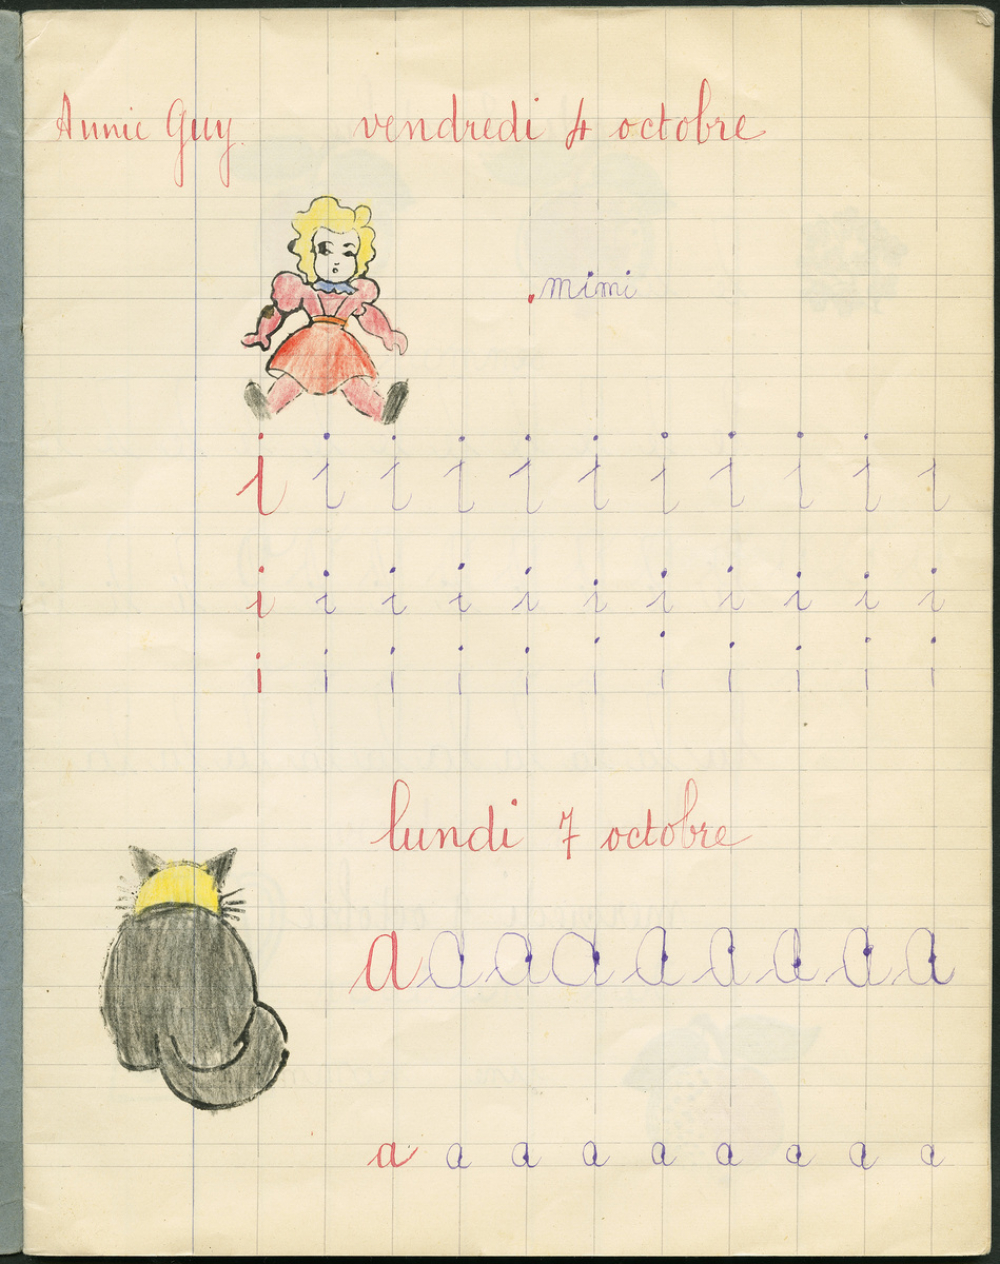 Annie Guy vendredi 4 octobre
mimi
i i i i i i i i i i i
i i i i i i i i i i i
i i i i i i i i i i i
lundi 7 octobre
a a a a a a a a a
a a a a a a a a a